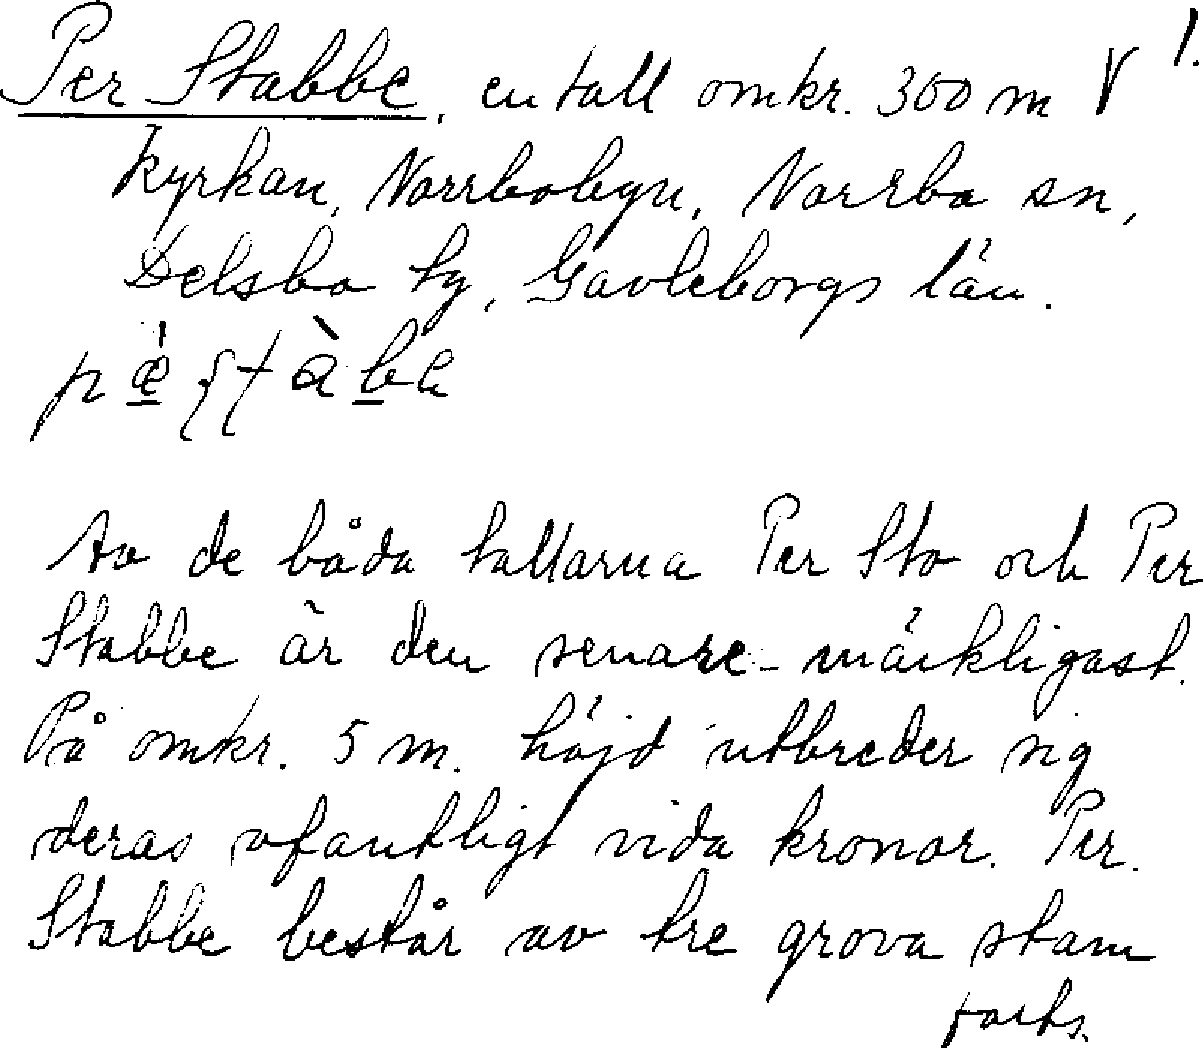 1.
Per Stabbe, en tall omkr. 300 m V
kyrkan, Norrbobyn, Norrbo sn,
Delsbo tg, Gävleborgs län.
Av de båda tallarna Per Sto och Per
Stabbe är den senare märkligast.
På omkr. 5 m. höjd utbreder sig
deras ofantligt vida kronor. Per.
Stabbe består av tre grova stam
forts.